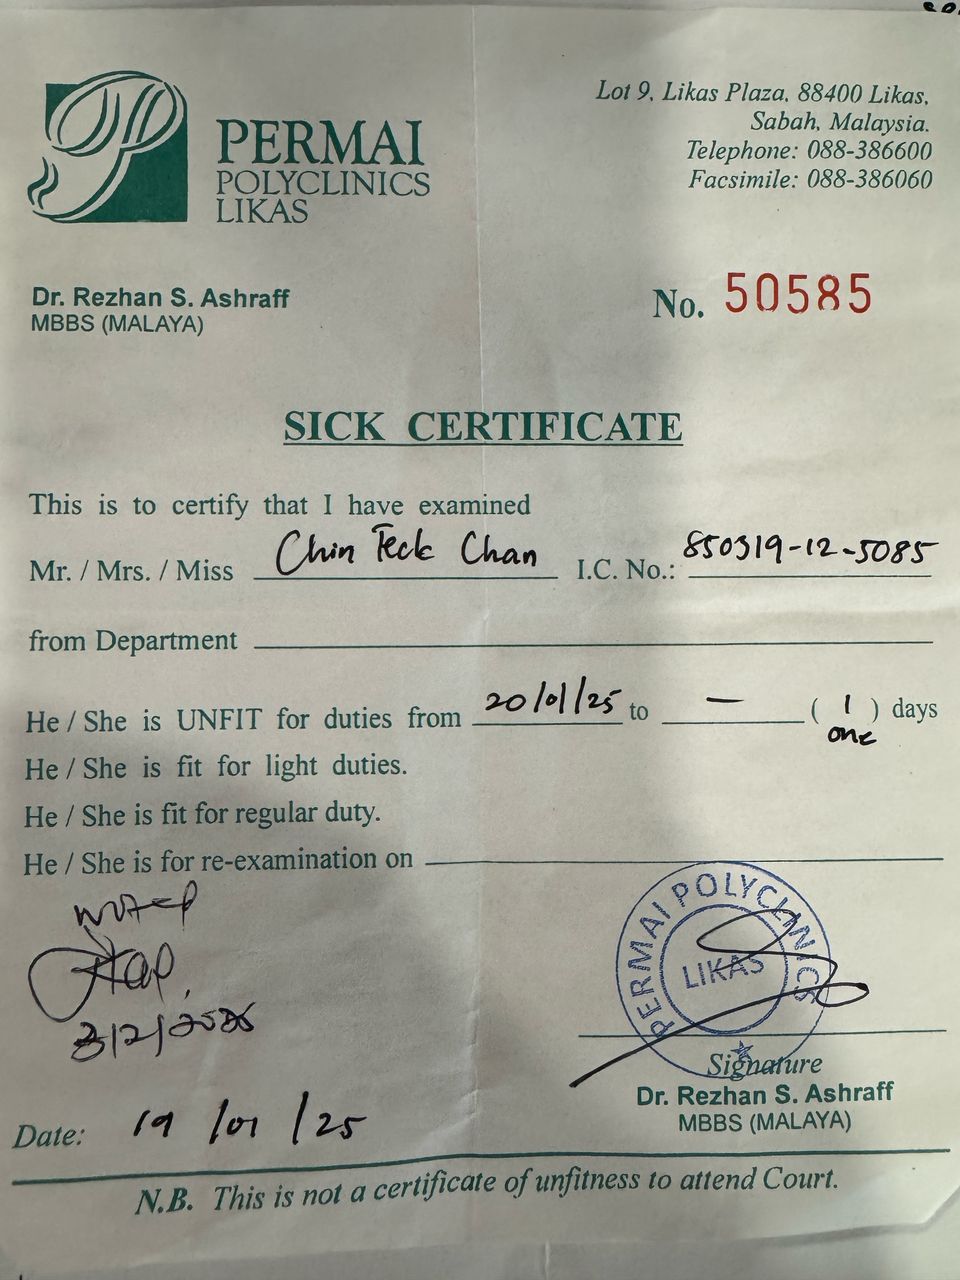 PERMAI
POLYCLINICS
LIKAS
Lot 9, Likas Plaza, 88400 Likas,
Sabah, Malaysia.
Telephone: 088-386600
Facsimile: 088-386060
Dr. Rezhan S. Ashraff
MBBS (MALAYA)
No. 50585
SICK CERTIFICATE
This is to certify that I have examined
Mr. / Mrs. / Miss Chin Teck Chan I.C. No.: 850319-12-5085
from Department
He / She is UNFIT for duties from 20/01/25 to — ( 1 ) days
one
He / She is fit for light duties.
He / She is fit for regular duty.
He / She is for re-examination on
PERMAI POLYCLINICS
LIKAS
Signature
Dr. Rezhan S. Ashraff
MBBS (MALAYA)
Date: 19/01/25
N.B. This is not a certificate of unfitness to attend Court.